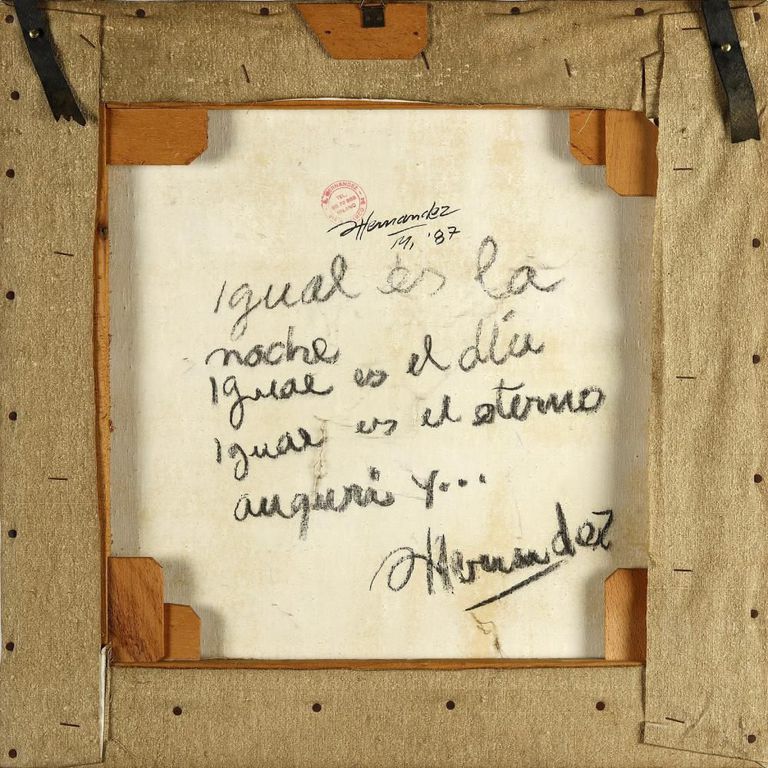 HERNANDEZ
TEL.
Hernandez
M, '87
Igual es la
noche
Igual es el día
Igual es el eterno
auguri y...
Hernandez